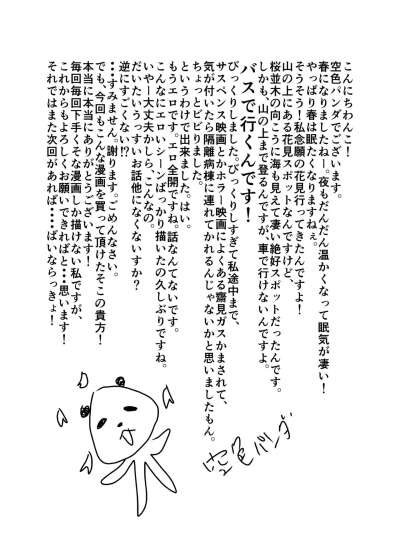 こんにちわんこ！
空色パンダでございます。
春になりましたねお！。夜もだんだん温かくなって眠気が凄い！
やっぱり春は眠たくなりますねぇ。
そうそう！私念願の花見行ってきたんですよ！
山の上にある花見スポットなんですけど、
桜並木の向こうに海も見えて凄い絶好スポットだったんです。
しかも、山の上まで登るんですが、車で行けないんですよ。
バスで行くんです！
びっくりしました。びっくりしすぎて私途中まで、
サスペンス映画とかホラー映画によくある齋見ガスかまされて、
気が付いたら隔離病棟に連れてかれるんじゃないかと思いましたもん。
ちょっとビビりました。
というわけで出来ました。はい。
もうエロです。エロ全開ですね。話なんてないです。
こんなにエロいシーンばっかり描いたの久しぶりですね。
いやー大丈夫かしら、こんなの。
だいたいうっすいお話他になくないすか？
逆にすごくない!!?
・・すみません。謝ります。ごめんなさい。
でも、今回もこんな漫画を買って頂けたそこの貴方！
本当に本当にありがとうございます！
毎回毎回下手くそな漫画しか描けない私ですが、
これからもよろしくお願いできればと・・思います！
それではまた次回があれば・・・ばいならっきょ！
空色パンダ